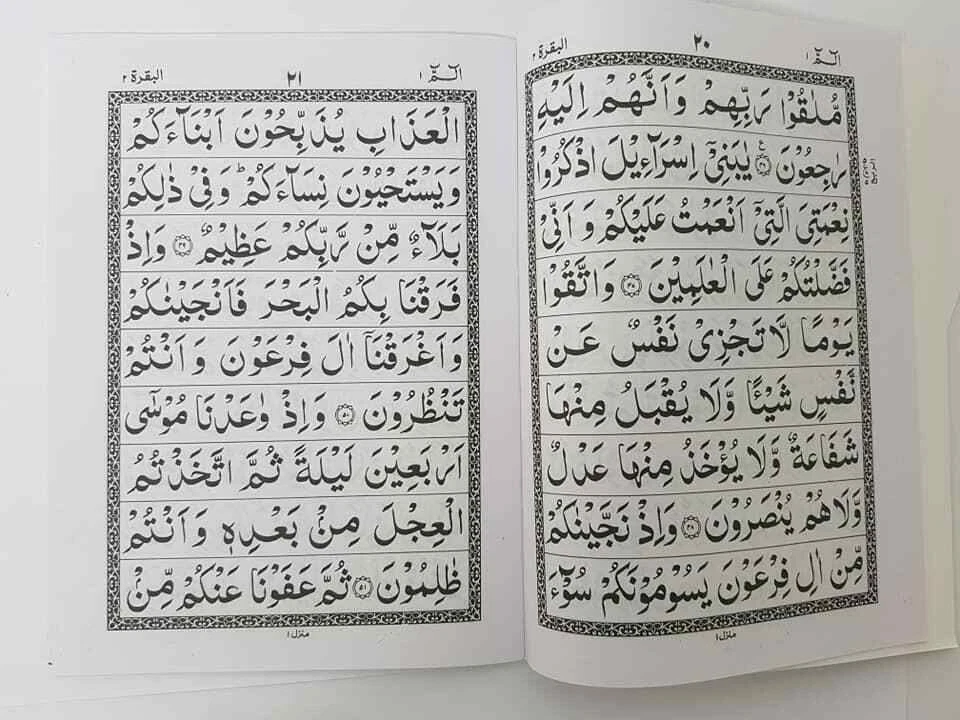 الٓمّٓ ١ ٢٠ البقرة ٢
مُّلٰقُوْا رَبِّهِمْ وَاَنَّهُمْ اِلَيْهِ
رٰجِعُوْنَ ۝٤٦ ع يٰبَنِيْٓ اِسْرَآءِيْلَ اذْكُرُوْا
نِعْمَتِيَ الَّتِيْٓ اَنْعَمْتُ عَلَيْكُمْ وَاَنِّيْ
فَضَّلْتُكُمْ عَلَى الْعٰلَمِيْنَ ۝٤٧ وَاتَّقُوْا
يَوْمًا لَّا تَجْزِيْ نَفْسٌ عَنْ
نَّفْسٍ شَيْـًٔا وَّلَا يُقْبَلُ مِنْهَا
شَفَاعَةٌ وَّلَا يُؤْخَذُ مِنْهَا عَدْلٌ
وَّلَا هُمْ يُنْصَرُوْنَ ۝٤٨ وَاِذْ نَجَّيْنٰكُمْ
مِّنْ اٰلِ فِرْعَوْنَ يَسُوْمُوْنَكُمْ سُوْٓءَ
منزل ١
الٓمّٓ ١ ٢١ البقرة ٢
الْعَذَابِ يُذَبِّحُوْنَ اَبْنَآءَكُمْ
وَيَسْتَحْيُوْنَ نِسَآءَكُمْ ؕ وَفِيْ ذٰلِكُمْ
بَلَآءٌ مِّنْ رَّبِّكُمْ عَظِيْمٌ ۝٤٩ وَاِذْ
فَرَقْنَا بِكُمُ الْبَحْرَ فَاَنْجَيْنٰكُمْ
وَاَغْرَقْنَآ اٰلَ فِرْعَوْنَ وَاَنْتُمْ
تَنْظُرُوْنَ ۝٥٠ وَاِذْ وٰعَدْنَا مُوْسٰٓى
اَرْبَعِيْنَ لَيْلَةً ثُمَّ اتَّخَذْتُمُ
الْعِجْلَ مِنْۢ بَعْدِهٖ وَاَنْتُمْ
ظٰلِمُوْنَ ۝٥١ ثُمَّ عَفَوْنَا عَنْكُمْ مِّنْۢ
منزل ١